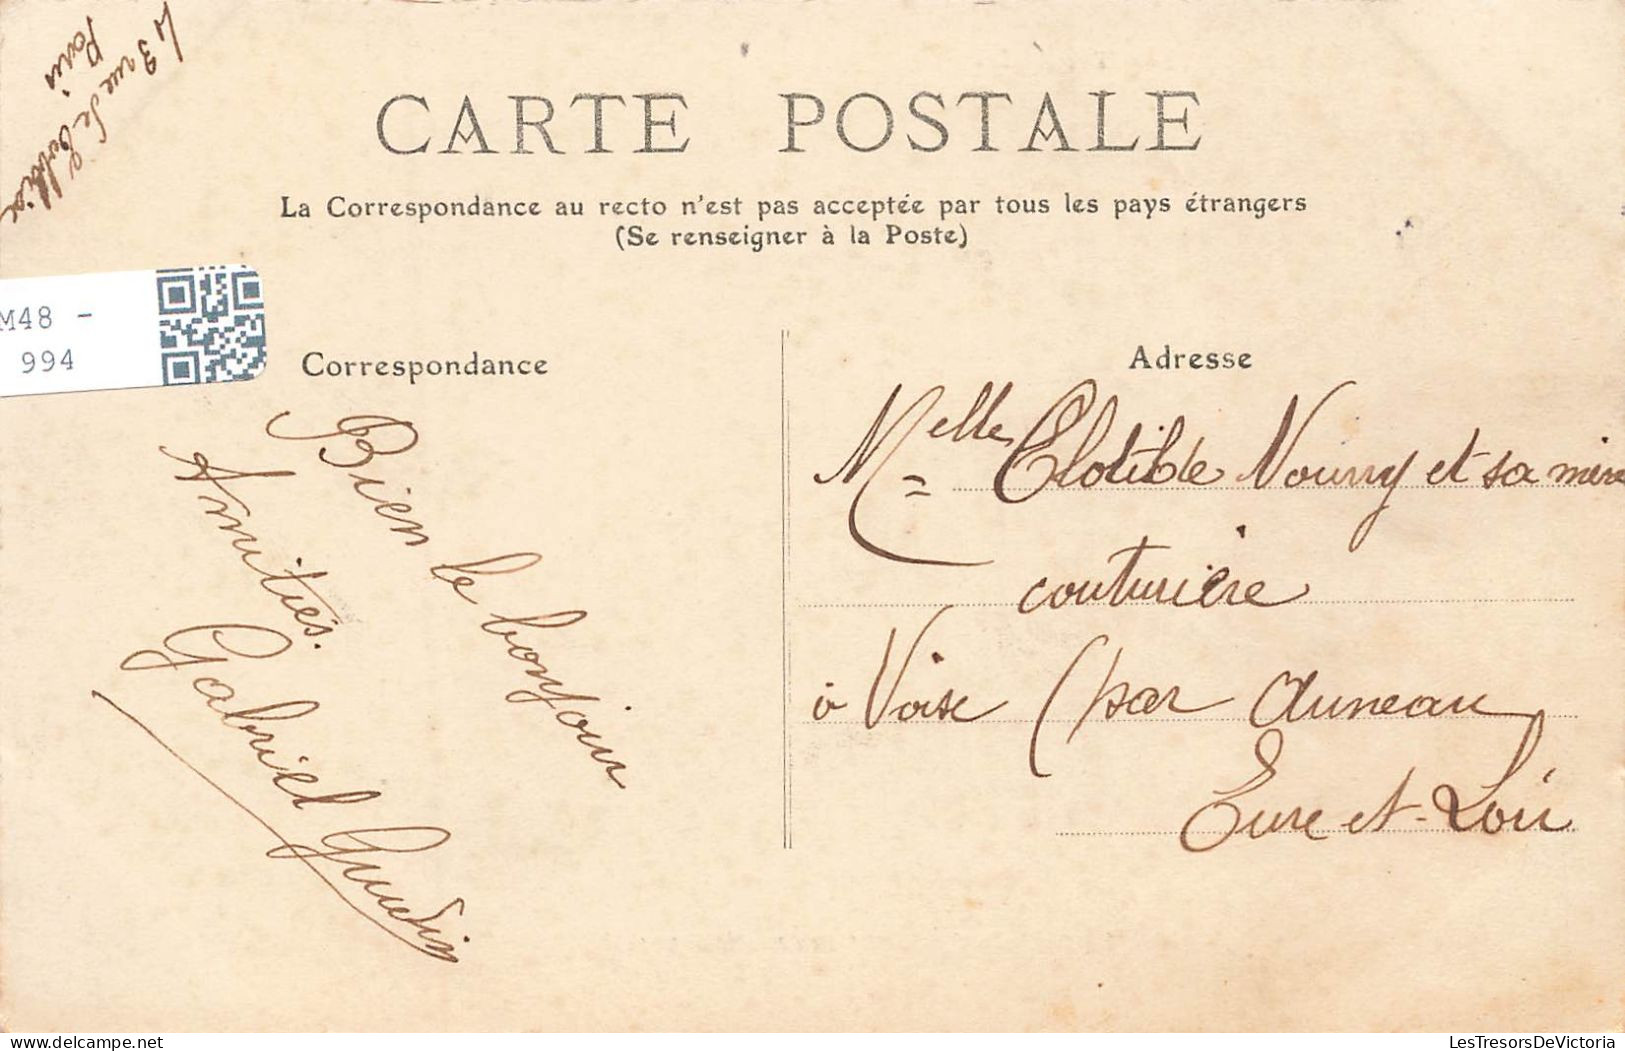 3 rue de
Paris
CARTE POSTALE
La Correspondance au recto n'est pas acceptée par tous les pays étrangers
(Se renseigner à la Poste)
M48 -
994
Correspondance
Bien le bonjour
Amitiés.
Gabriel Guedin
Adresse
Melle Clotilde Nourry et sa mère
couturière
à Voise (par Auneau
Eure et-Loir
LesTresorsDeVictoria
www.delcampe.net